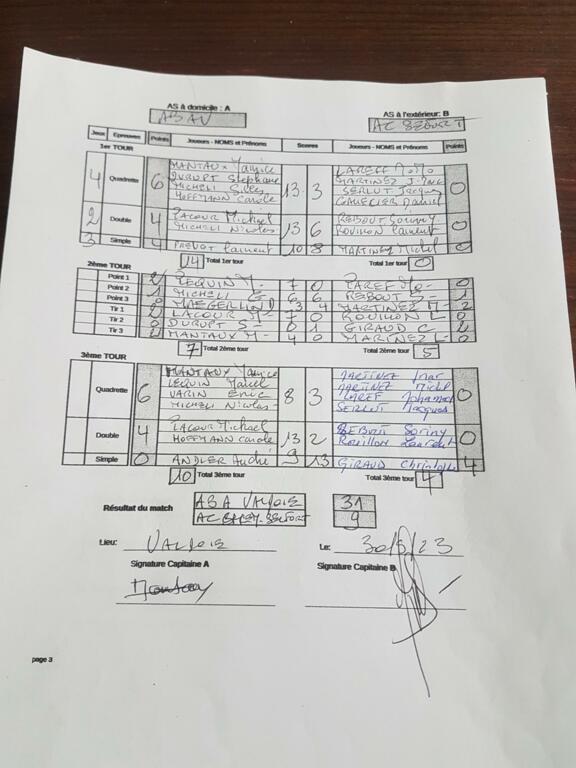 AS à domicile : A AS à l'extérieur: B
ABAV AC BELFORT
Jeux Epreuves Points Joueurs - NOMS et Prénoms Scores Joueurs - NOMS et Prénoms Points
1er TOUR
4 Quadrette 6 MANTAUX Yannice 13 3 LAREFF MOMO 0
DURUPT Stéphane MARTINEZ J. Marc
MICHELI Gilles SERLUT Jacques
HOFFMANN Carole Daniel
2 Double 4 LACOUR Michael 13 6 REBOUT Soriny 0
MICHELI Nicolas ROUILLON Laurent
3 Simple 4 PREVOT Laurent 10 8 MARTINEZ Michel 0
14 Total 1er tour Total 1er tour 0
2ème TOUR
Point 1 2 LEQUIN M- 7 0 LAREF Mo- 0
Point 2 1 MICHELI G- 6 6 REBOUT S- 1
Point 3 0 MAEGERLIN D 3 4 MARTINEZ M- 2
Tir 1 2 LACOUR M- 7 0 ROUILLON L 0
Tir 2 0 DURUPT S- 0 1 GIRAUD C 2
Tir 3 2 MANTAUX Y- 4 0 MARTINEZ L- 0
7 Total 2ème tour Total 2ème tour 5
3ème TOUR
Quadrette 6 MANTAUX Yannice 8 3 MARTINEZ Marc 0
LEQUIN Marcel MARTINEZ Michel
VARIN Eric LAREF Mohammed
MICHELI Nicolas SERLUT Jacques
Double 4 LACOUR Michael 13 2 REBOUT Soriny 0
HOFFMANN Carole Rouillon Laurent
Simple 0 ANDLER André 9 13 GIRAUD Christophe 4
10 Total 3ème tour Total 3ème tour 4
Résultat du match ABA VALDOIE 31
AC BELFORT 9
Lieu: VALDOIE Le: 30/5/23
Signature Capitaine A Signature Capitaine B
page 3